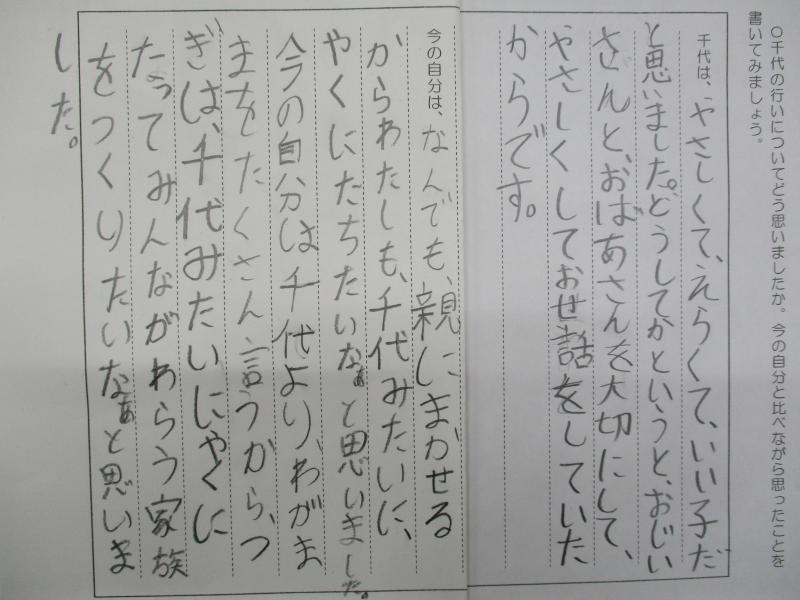 〇千代の行いについてどう思いましたか。今の自分と比べながら思ったことを
書いてみましょう。
千代は、やさしくて、えらくて、いい子だ
と思いました。どうしてかというと、おじい
さんと、おばあさんを大切にして、
やさしくしておせ話をしていた
からです。
今の自分は、なんでも、親にまかせる
からわたしも、千代みたいに、
やくにたちたいなぁと思いました。
今の自分は千代より、わがま
まをたくさん言うから、つ
ぎは、千代みたいにやくに
たってみんながわらう家族
をつくりたいなぁと思いま
した。